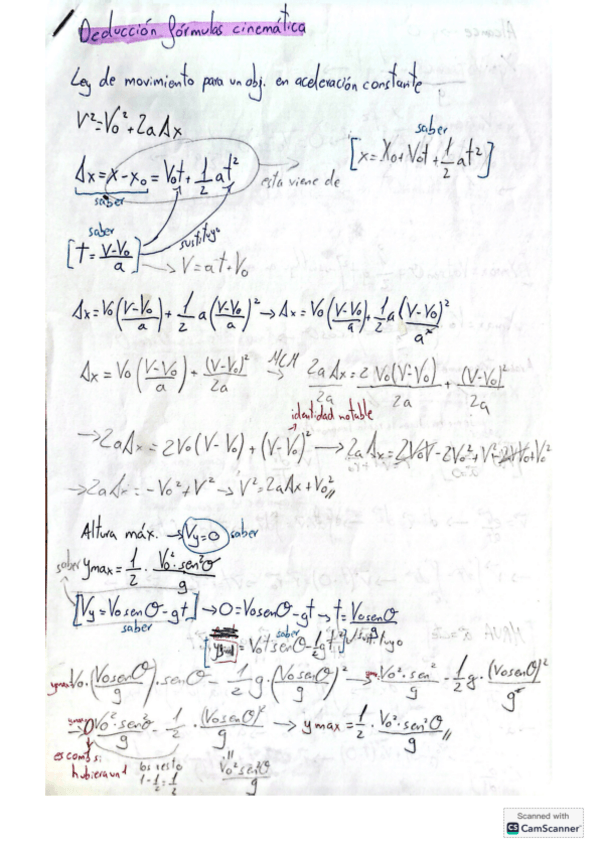 Deducción fórmulas cinemática
Ley de movimiento para un obj. en aceleración constante
V² = V₀² + 2aΔx
saber
[x = x₀ + V₀t + 1/2 at²]
Δx = x - x₀ = V₀t + 1/2 at²
esta viene de
saber
saber
[t = (V-V₀)/a]
sustituyo
→ V = at + V₀
Δx = V₀((V-V₀)/a) + 1/2 a((V-V₀)/a)² → Δx = V₀((V-V₀)/a) + 1/2 a (V-V₀)²/a²
Δx = V₀((V-V₀)/a) + (V-V₀)²/2a MCM → 2aΔx/2a = 2V₀(V-V₀)/2a + (V-V₀)²/2a
identidad notable
→ 2aΔx = 2V₀(V-V₀) + (V-V₀)² → 2aΔx = 2V₀V - 2V₀² + V² - 2VV₀ + V₀²
→ 2aΔx = -V₀² + V² → V² = 2aΔx + V₀²//
Altura máx. → Vy=0 saber
saber ymax = 1/2 · V₀²·sen²θ/g
[Vy = V₀senθ - gt] → 0 = V₀senθ - gt → t = V₀senθ/g
saber
saber
= V₀tsenθ - 1/2 gt²] sustituyo
ymax = V₀·(V₀senθ/g)·senθ - 1/2 g·(V₀senθ/g)² → V₀²·sen²/g - 1/2 g·(V₀senθ)²/g²
→ V₀²·sen²θ/g - 1/2 · (V₀senθ)²/g → ymax = 1/2 · V₀²·sen²θ/g //
es como si
hubiera un 1
los resto
1 - 1/2 = 1/2
V₀²sen²θ/g
Scanned with
CS CamScanner